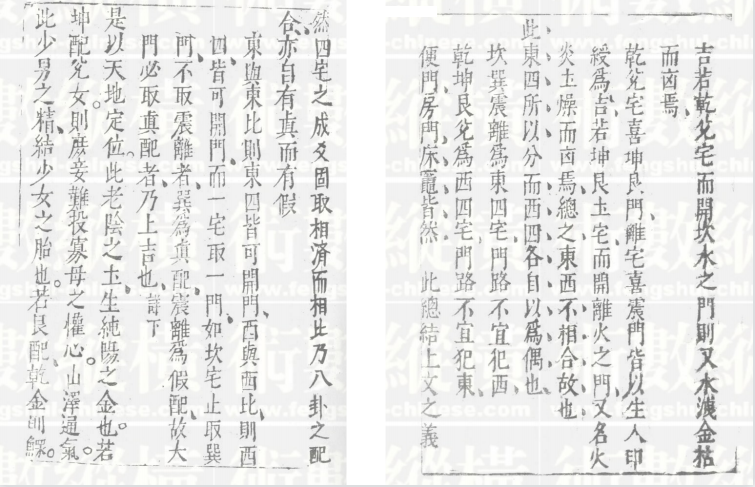 吉若乾兌宅而開坎水之門則又水淺金枯
而凶焉
乾兌宅喜坤艮門離宅喜震門皆以生入印
綬爲吉若坤艮土宅而開離火之門又名火
炎土燥而凶焉總之東西不相合故也
此東四所以分而西四各自以爲偶也
坎巽震離爲東四宅門路不宜犯西
乾坤艮兌爲西四宅門路不宜犯東
便門房門床竈皆然 此總結上文之義
然四宅之成又固取相濟而相比乃八卦之配
合亦自有真而有假
東與東比則東四皆可開門西與西比則西
四皆可開門而一宅取一門如坎宅止取巽
門不取震離者巽爲真配震離爲假配故大
門必取真配者乃上吉也詳下
是以天地定位此老陰之土生純陽之金也若
坤配兌女則庶妾難投寡母之權心山澤通氣
此少男之精結少女之胎也若艮配乾金則鰥